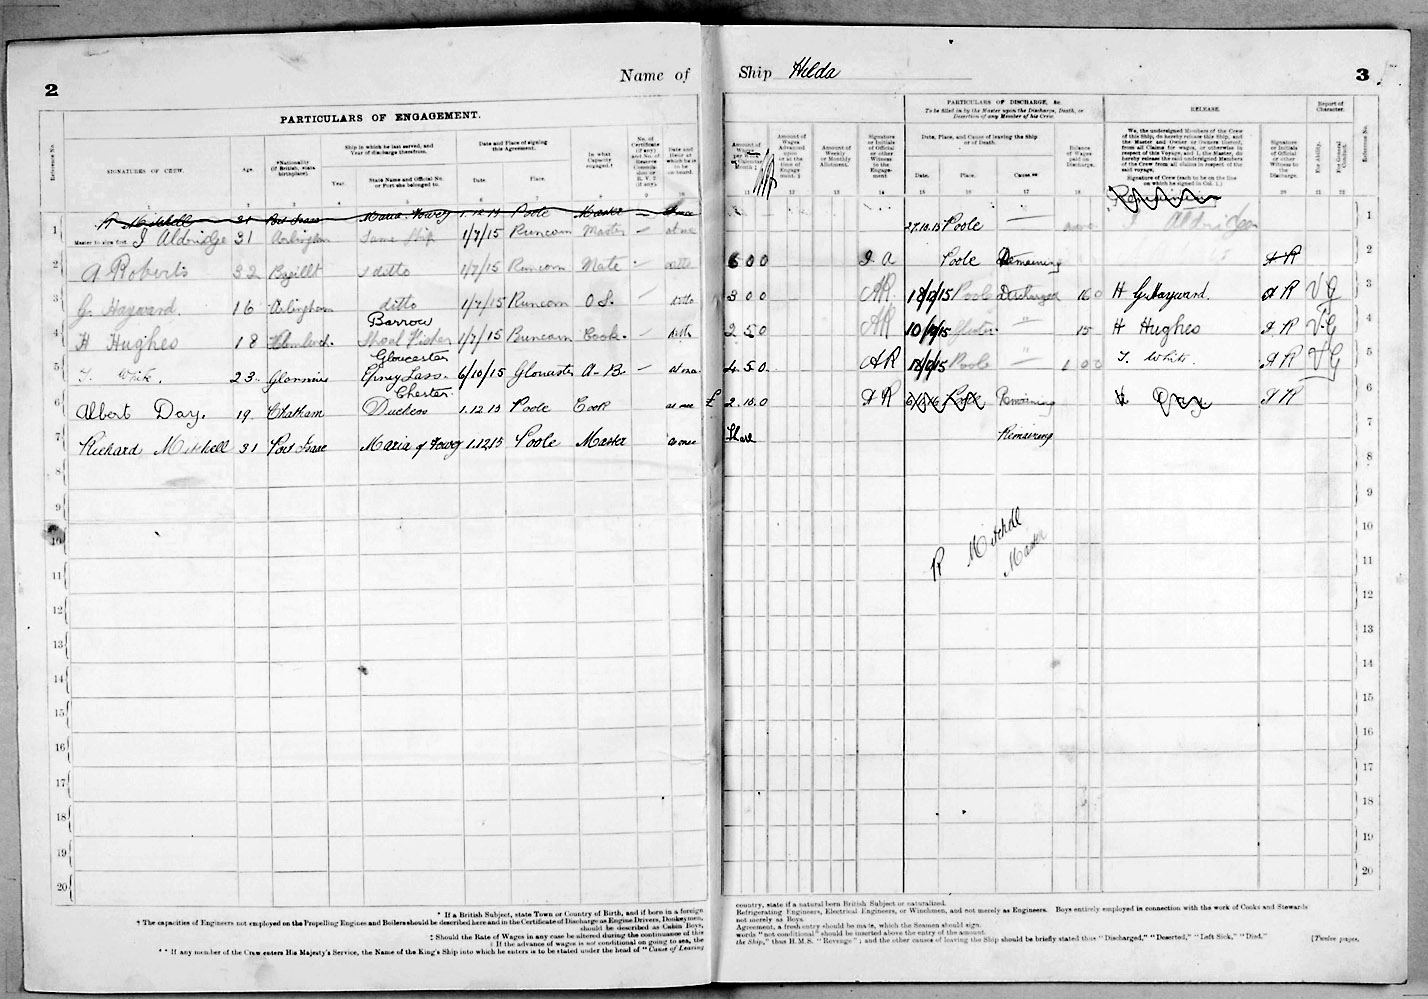 Name of Ship Hilda
2
3
PARTICULARS OF ENGAGEMENT.
PARTICULARS OF DISCHARGE, &c.
To be filled in by the Master upon the Discharge, Death, or Desertion of any Member of his Crew.
RELEASE.
Report of Character.
Reference No.
SIGNATURES OF CREW.
Age.
*Nationality (If British, state birthplace).
Ship in which he last served, and Year of discharge therefrom.
Year.
State Name and Official No. or Port she belonged to.
Date and Place of signing this Agreement.
Date.
Place.
In what Capacity engaged.†
No. of Certificate (if any)
Date and Hour at which he is to be on board.
Amount of Wages per Week or Calendar Month
Amount of Wages Advanced upon or at the time of Engagement.
Amount of Weekly or Monthly Allotment.
Signature or Initials of Official or other Witness to the Engagement
Date, Place, and Cause of leaving the Ship or of Death.
Date.
Place.
Cause.
Balance of Wages paid on Discharge.
We, the undersigned Members of the Crew of this Ship, do hereby release this Ship, and the Master and Owner or Owners thereof, from all Claims for wages, or otherwise in respect of this Voyage, and I, the Master, do hereby release the said undersigned Members of the Crew from all claims in respect of the said voyage.
Signature of Crew (each to be on the line on which he signed in Col. 1.)
Signature or Initials of Official or other Witness to the Discharge.
For Ability.
For General Conduct.
Reference No.
1 R Mitchell 31 Port Isaac Maria Fowey 1.12.15 Poole Master at once
Master to sign first. J Aldridge 31 Arlingham Same Ship 1/7/15 Runcorn Master at once 27.10.15 Poole Aldridge 1
2 A Roberts 32 Bagillt ditto 1/7/15 Runcorn Mate ditto 6 0 0 J. A Poole Remaining A R 2
3 G. Hayward 16 Arlingham ditto 1/7/15 Runcorn O.S. ditto 3 0 0 AR Poole Discharged G Hayward. A R V G 3
4 H Hughes 18 Barrow Shoal Fisher 1/7/15 Runcorn Cook. ditto 2 5 0 AR " H Hughes A R V.G 4
5 T. White. 23 Gloucester Epney Lass. 6/10/15 Gloucester A-B at once 4.5.0 A R Poole " T. White A R V G 5
6 Albert Day. 19. Chatham Chester Duchess 1.12 15 Poole Cook at once £ 2.10.0 A R Poole Remaining A R 6
7 Richard Mitchell 31 Port Isaac Maria of Fowey 1.12.15 Poole Master at once Share Remaining 7
8 8
9 9
10 R Mitchell 10
11 Master 11
12 12
13 13
14 14
15 15
16 16
17 17
18 18
19 19
20 20
* If a British Subject, state Town or Country of Birth, and if born in a foreign country, state if a natural born British Subject or naturalized.
† The capacities of Engineers not employed on the Propelling Engines and Boilers should be described here and in the Certificate of Discharge as Engine Drivers, Donkeymen, Refrigerating Engineers, Electrical Engineers, or Winchmen, and not merely as Engineers. Boys entirely employed in connection with the work of Cooks and Stewards
should be described as Cabin Boys, not merely as Boys.
‡ Should the Rate of Wages in any case be altered during the continuance of this Agreement, a fresh entry should be made, which the Seamen should sign.
If the advance of wages is not conditional on going to sea, the words "not conditional" should be inserted above the entry of the amount.
** If any member of the Crew enters His Majesty's Service, the Name of the King's Ship into which he enters is to be stated under the head of "Cause of Leaving the Ship," thus H.M.S. "Revenge"; and the other causes of leaving the Ship should be briefly stated thus "Discharged," "Deserted," "Left Sick," "Died."
[Twelve pages.